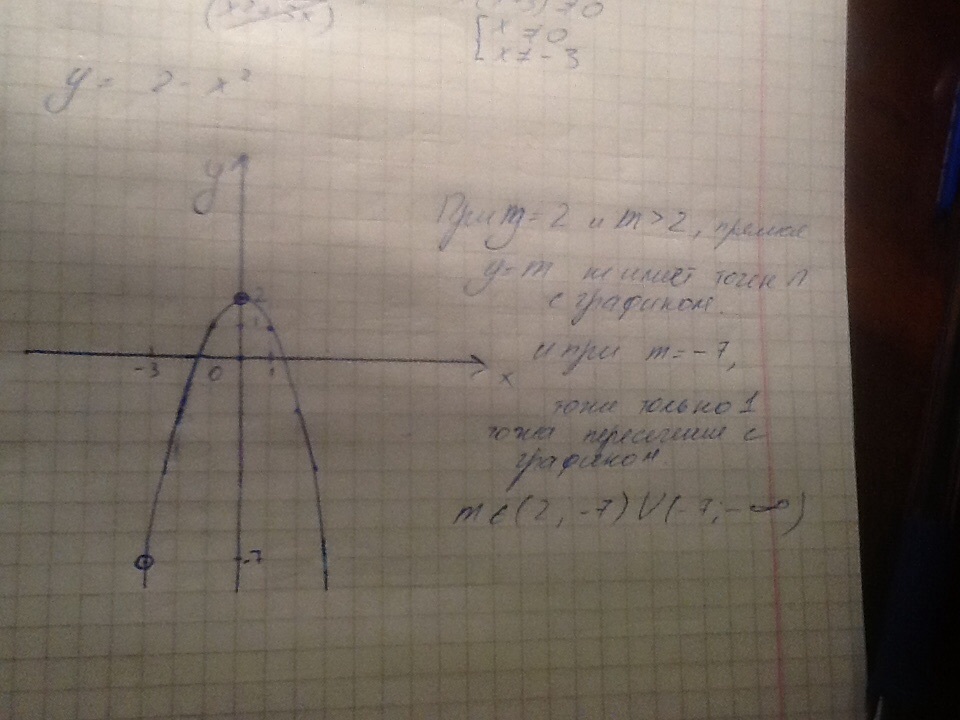 (x²+3x)
≠0
x≠0
x≠-3
y = 2 - x²
y
2
1
-3
0
1
x
-7
При m=2 и m>2, прямая
y=m не имеет точек П
с графиком.
и при m=-7,
тоже только 1
точка пересечение с
графиком
m∈(2,-7)∪(-7;-∞)